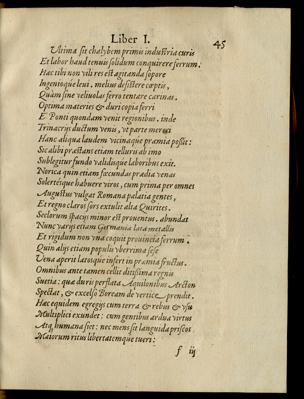 Liber I.
45
Vltima sit chalybem primis industria curis
Et labor haud tenuis solidum conquirere ferrum:
Hac tibi non vili res est agitanda sopore
Ingenioque leui, melius desistere cœptis,
Quàm sine veliuolas ferro tentare carinas.
Optima materies & duri copia ferri
E Ponti quondam venit regionibus, inde
Trinacrijs ductum venis, vt parte
Hanc aliqua laudem vicinaque præmia possit:
Sic alibi præstans etiam telluri ab imo
Sublegitur fundo validisque laboribus exit.
Norica quin etiam fœcundas prædia venas
Solertesque habuere viros, cum prima per omnes
Augustus vulgat Romana palatia gentes,
Et regno claros sors extulit alta Quirites.
Seclorum spacijs minor est prouentus, abundat
Nunc varijs etiam Germania lata metallis
Et rigidum non vna coquit prouincia ferrum.
Quin alijs etiam populis vberrima
Vena aperit latosque insert in præmia fructus.
Omnibus ante tamen cellit ditissima regnis
Suetia: qua duris perflata Aquilonibus Arcton
Spectat, & excelso Boream de vertice prendit.
Hac equidem egregys cum terra & rebus & vsu
Multiplici exundet: cum gentibus ardua virtus
Atq, humana siet: nec mens sit languida priscos
Maiorum ritus libertatemque tueri:
f iij